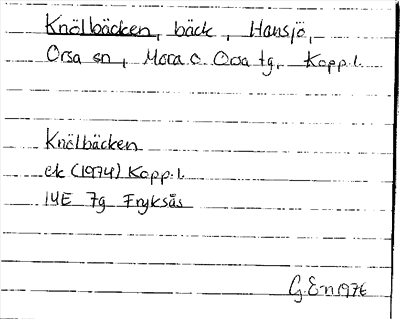 Knölbäcken, bäck, Hansjö,
Orsa sn, Mora o. Orsa tg, Kopp.l.
Knölbäcken
ek (1974) Kopp.l.
14E 7g Fryksås
G.E-n 1976